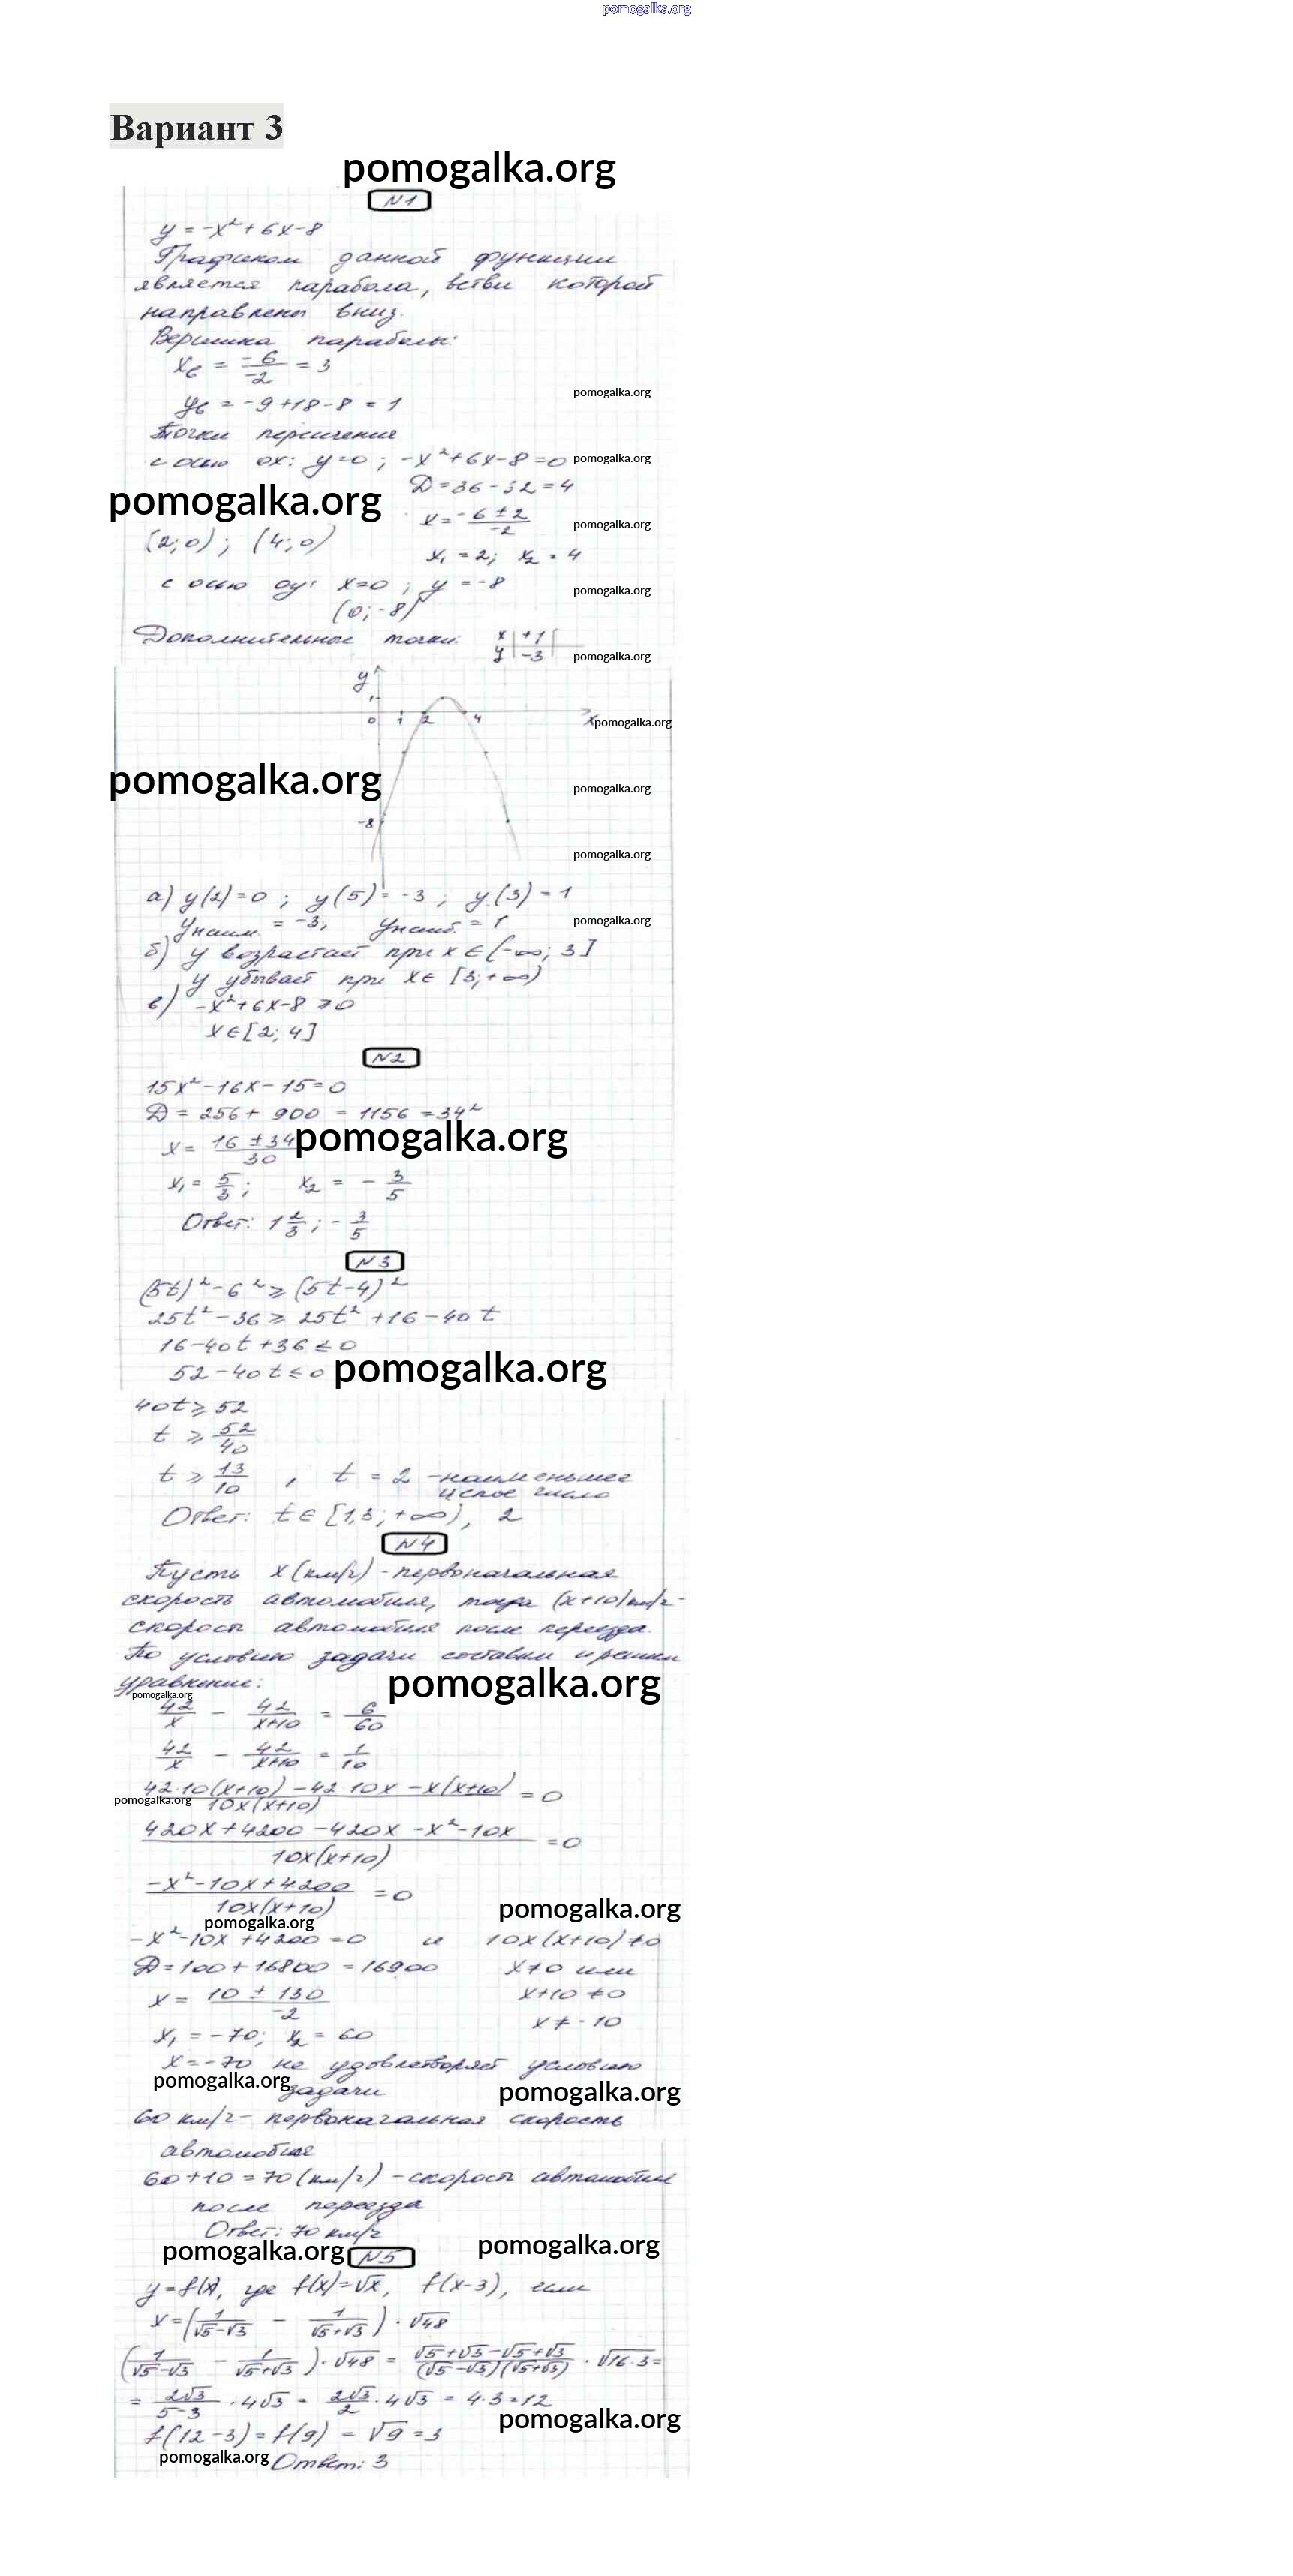 pomogalka.org
Вариант 3
pomogalka.org
N1
y = -x² + 6x - 8
Графиком данной функции
является парабола, ветви которой
направлены вниз.
Вершина параболы:
x_в = -6/-2 = 3
y_в = -9+18-8 = 1
pomogalka.org
Точки пересичения
с осью ox: y=0; -x²+6x-8=0
pomogalka.org
Д = 36-32 = 4
pomogalka.org
x = (-6 ± 2)/-2
pomogalka.org
(2; 0); (4; 0)
x₁ = 2; x₂ = 4
с осью oy: x=0; y = -8
pomogalka.org
(0; -8)
Дополнительные точки: x | +1
y | -3
pomogalka.org
y
1
0 1 2 4 x
pomogalka.org
pomogalka.org
pomogalka.org
-8
pomogalka.org
а) y(2)=0; y(5)= -3; y(3)=1
yнаим. = -3, yнаиб. = 1
pomogalka.org
б) y возрастает при x ∈ (-∞; 3]
y убывает при x ∈ [3; +∞)
в) -x²+6x-8 ≥ 0
x ∈ [2; 4]
N2
15x² - 16x - 15 = 0
Д = 256 + 900 = 1156 = 34²
x = (16 ± 34)/30
pomogalka.org
x₁ = 5/3; x₂ = - 3/5
Ответ: 1 2/3; - 3/5
N3
(5t)² - 6² ≥ (5t-4)²
25t² - 36 ≥ 25t² + 16 - 40t
16 - 40t + 36 ≤ 0
52 - 40t ≤ 0
pomogalka.org
40t ≥ 52
t ≥ 52/40
t ≥ 13/10, t = 2 - наименьшее
целое число
Ответ: t ∈ [1,3; +∞), 2
N4
Пусть x (км/ч) - первоначальная
скорость автомобиля, тогда (x+10) км/ч -
скорость автомобиля после переезда.
По условию задачи составим и решим
уравнение:
pomogalka.org
pomogalka.org
42/x - 42/(x+10) = 6/60
42/x - 42/(x+10) = 1/10
(42·10(x+10) - 42·10x - x(x+10))/(10x(x+10)) = 0
pomogalka.org
(420x + 4200 - 420x - x² - 10x)/(10x(x+10)) = 0
(-x² - 10x + 4200)/(10x(x+10)) = 0
pomogalka.org
pomogalka.org
-x² - 10x + 4200 = 0 и 10x(x+10) ≠ 0
Д = 100 + 16800 = 16900 x ≠ 0 или
x = (10 ± 130)/-2 x+10 ≠ 0
x ≠ -10
x₁ = -70; x₂ = 60
x = -70 не удовлетворяет условию
задачи
pomogalka.org
pomogalka.org
60 км/ч - первоначальная скорость
автомобиля
60+10 = 70 (км/ч) - скорость автомобиля
после переезда
Ответ: 70 км/ч
pomogalka.org
pomogalka.org
N5
y = f(x), где f(x) = √x, f(x-3), если
x = (1/(√5-√3) - 1/(√5+√3)) · √48
(1/(√5-√3) - 1/(√5+√3)) · √48 = (√5+√3-√5+√3)/((√5-√3)(√5+√3)) · √16·3 =
= 2√3/(5-3) · 4√3 = 2√3/2 · 4√3 = 4·3 = 12
pomogalka.org
f(12-3) = f(9) = √9 = 3
pomogalka.org
Ответ: 3